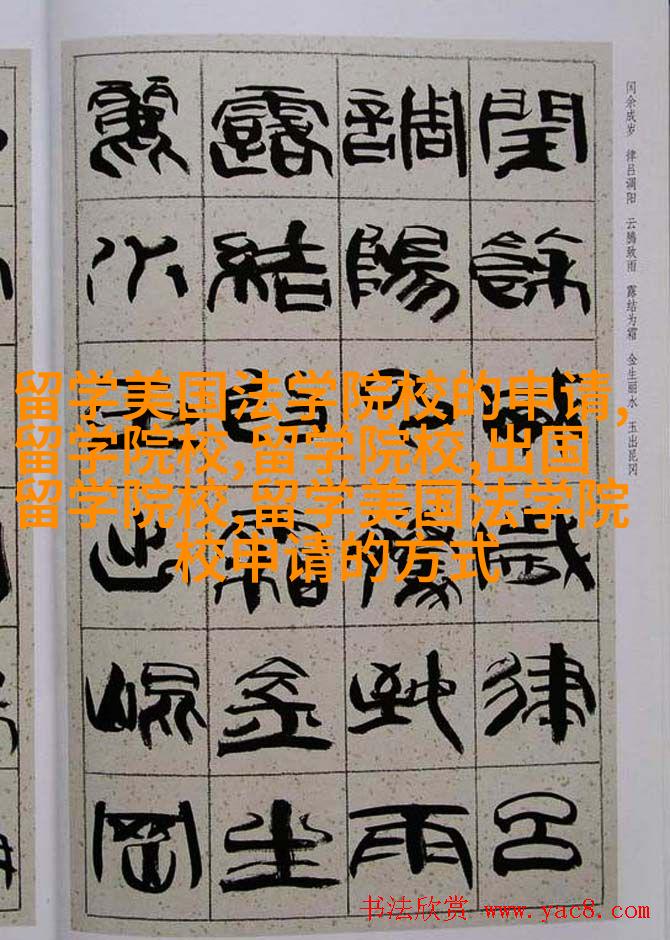 闰余成岁 律吕调阳 云腾致雨 露结为霜 金生丽水 玉出昆冈
閏餘成歲律呂
調陽雲騰致雨
露結為霜金生
麗水玉出崐岡
留学美国法学院校的申请,
留学院校,留学院校,出国
留学院校,留学美国法学院
校申请的方式
书法欣赏 www.yac8.com